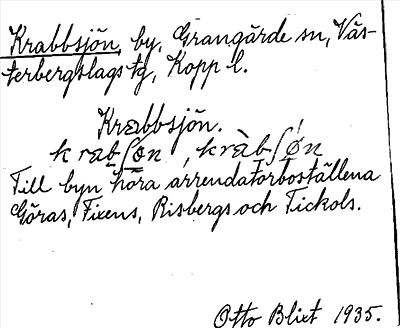 Krabbsjön, by, Grangärde sn, Väs-
terbergslags tg, Kopp. l.
Krabbsjön.
krabʃøn, kràbʃøn
Till byn höra arrendatorboställena
Göras, Fixens, Risbergs och Tickols.
Otto Blixt 1935.